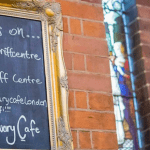 s on...
riffcentre
ff Centre
arycafelondon
vory Cafe